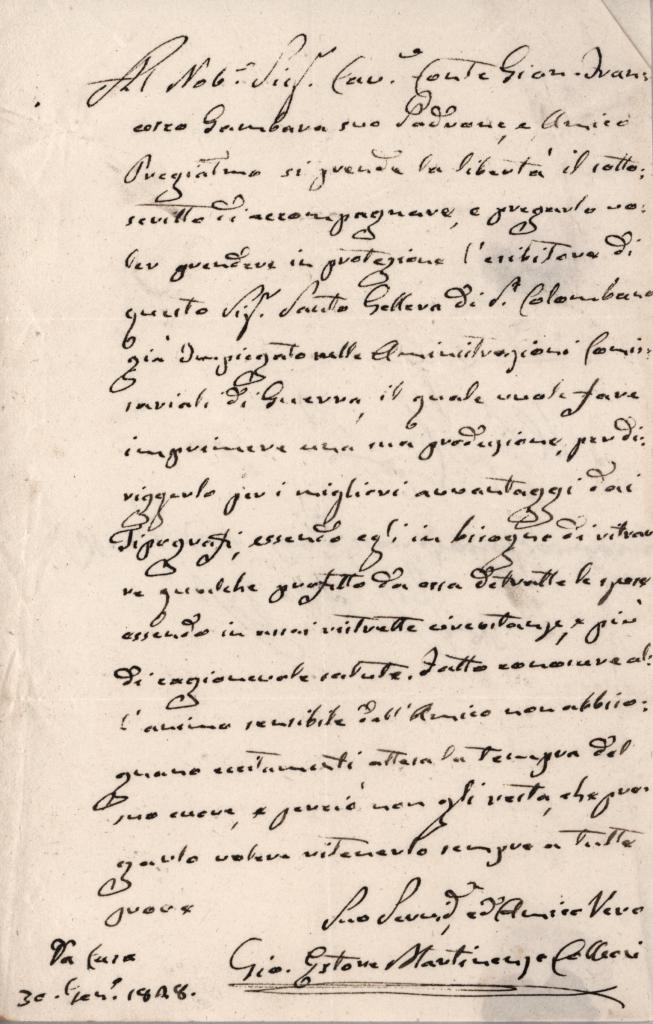 Al Nob.e Sig.r Cav.e Conte Gian-Fran-
cesco Gambara suo Padrone, e Amico
Pregiatmo si prende la libertà il sotto:
scritto di accompagnare, e pregarlo vo:
ler prendere in protezione l'esibitore di
questo Sig.r Santo Gellera di S.n Colombano
già Impiegato nelle Aministrazioni Comis:
sariali di Guerra, il quale vuole fare
imprimere una sua produzione, per di:
riggerlo per i migliori avvantaggi dai
Tipografi, essendo egli in bisogno di ritrar
re qualche profitto da essa detratte le spese
essendo in assai ristrette circostanze, e più
di cagionevole salute. Fatto conoscere al:
l'animo sensibile dell'Amico non abbiso:
gnano eccitamenti attesa la tempra del
suo cuore, e perciò non gli resta, che pre:
garlo volere ritenerlo sempre a tutte
prove
Suo Serv.e, ed Amico Vero
Da Casa
Gio. Estore Martinengo Colleoni
30. Gen.o 1828.